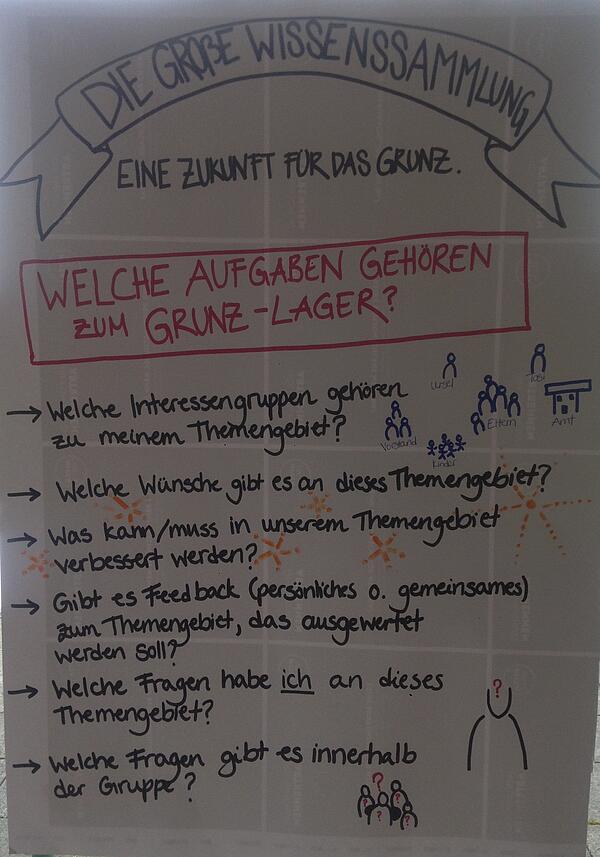 DIE GROßE WISSENSSAMMLUNG
EINE ZUKUNFT FÜR DAS GRUNZ.
WELCHE AUFGABEN GEHÖREN
ZUM GRUNZ-LAGER?
→ Welche Interessengruppen gehören
zu meinem Themengebiet?
Vorstand
Kinder
Eltern
Amt
→ Welche Wünsche gibt es an dieses Themengebiet?
→ Was kann/muss in unserem Themengebiet
verbessert werden?
→ Gibt es Feedback (persönliches o. gemeinsames)
zum Themengebiet, das ausgewertet
werden soll?
→ Welche Fragen habe ich an dieses
Themengebiet?
?
→ Welche Fragen gibt es innerhalb
der Gruppe?
?
? ? ?